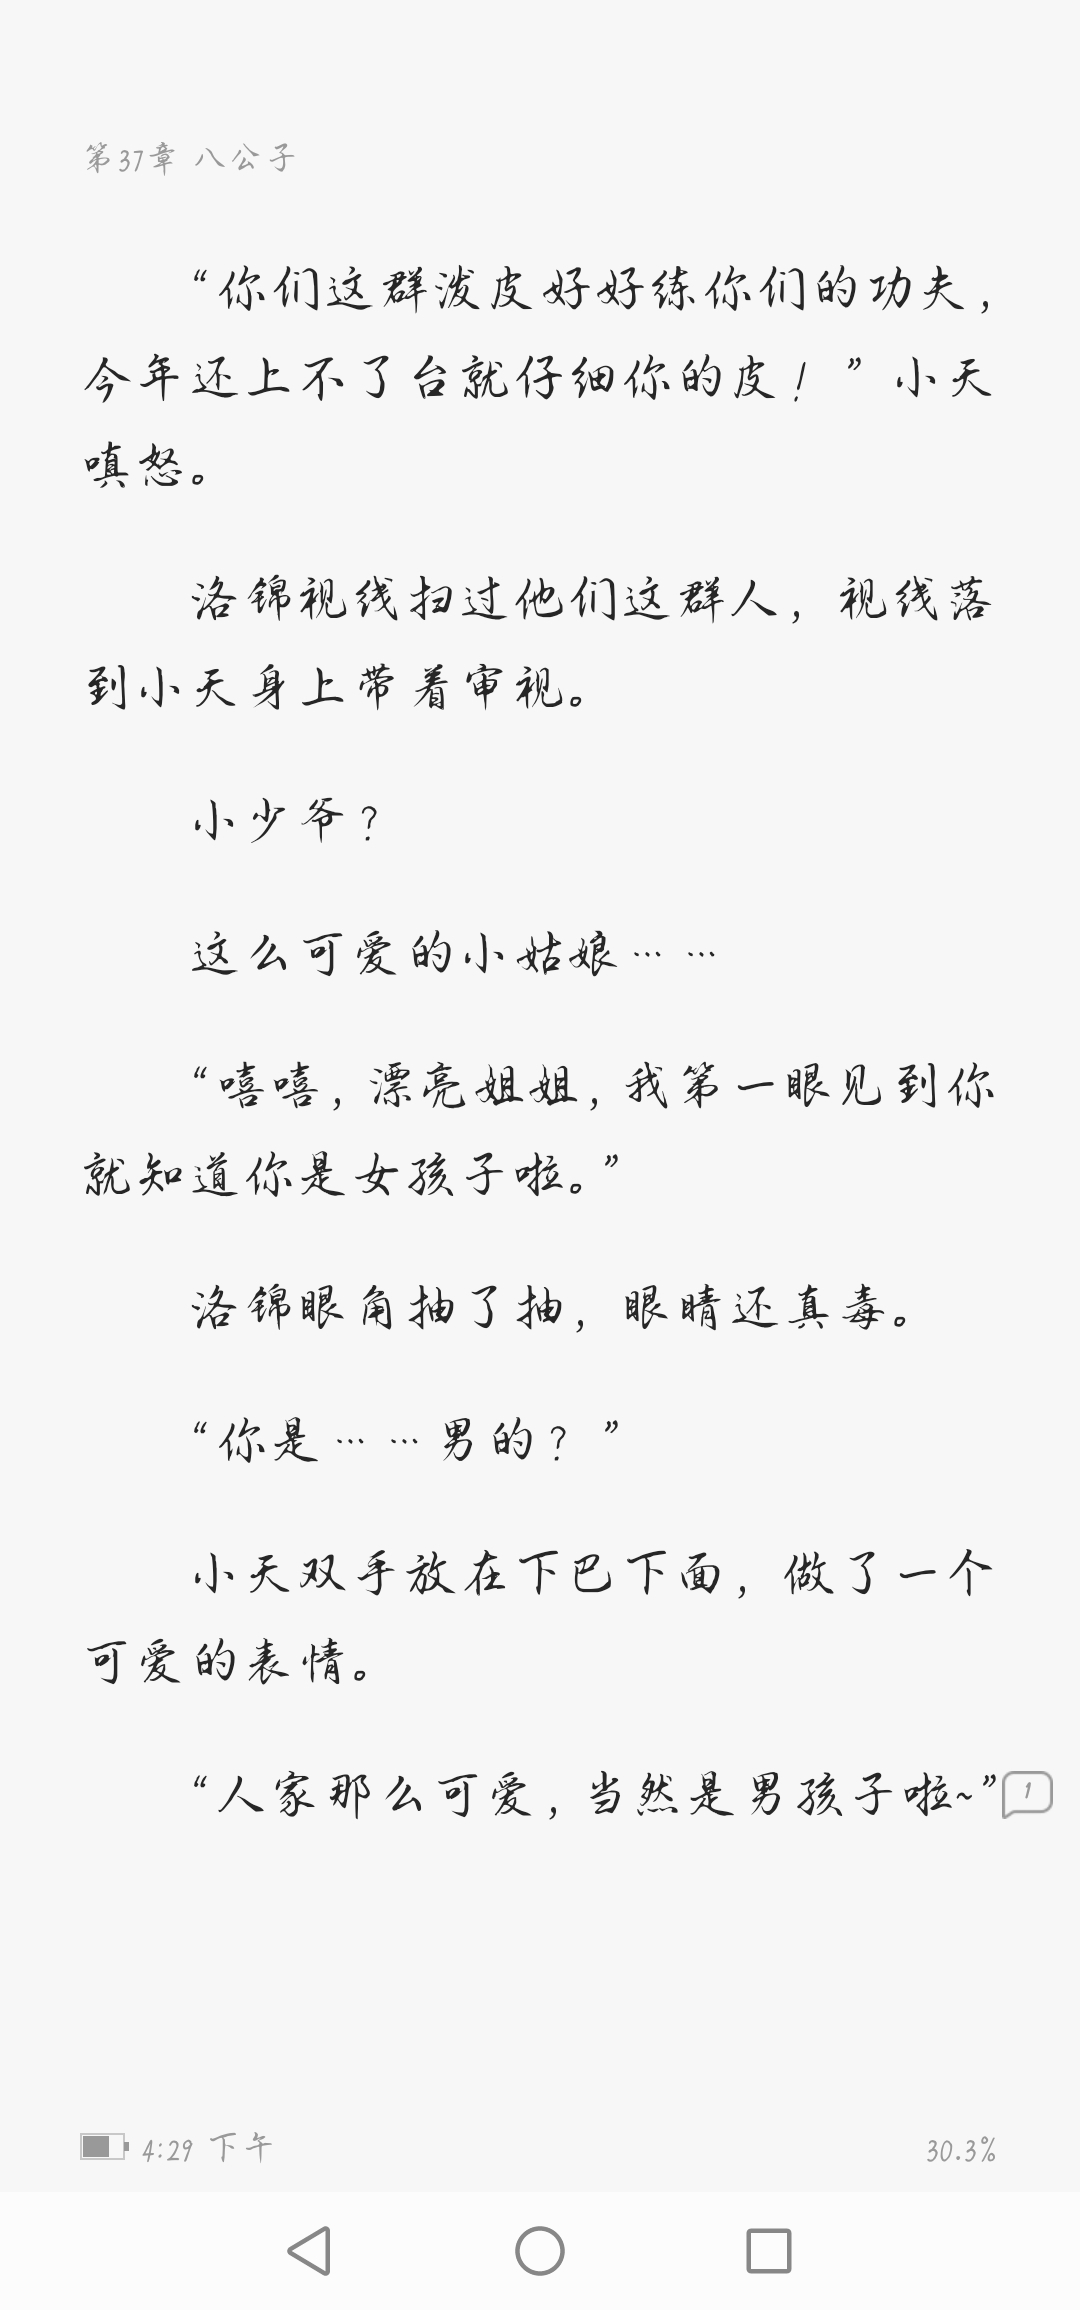 第37章 八公子
“你们这群泼皮好好练你们的功夫，
今年还上不了台就仔细你的皮！”小天
嗔怒。
洛锦视线扫过他们这群人，视线落
到小天身上带着审视。
小少爷？
这么可爱的小姑娘……
“嘻嘻，漂亮姐姐，我第一眼见到你
就知道你是女孩子啦。”
洛锦眼角抽了抽，眼睛还真毒。
“你是……男的？”
小天双手放在下巴下面，做了一个
可爱的表情。
“人家那么可爱，当然是男孩子啦~”
1
4:29 下午
30.3%